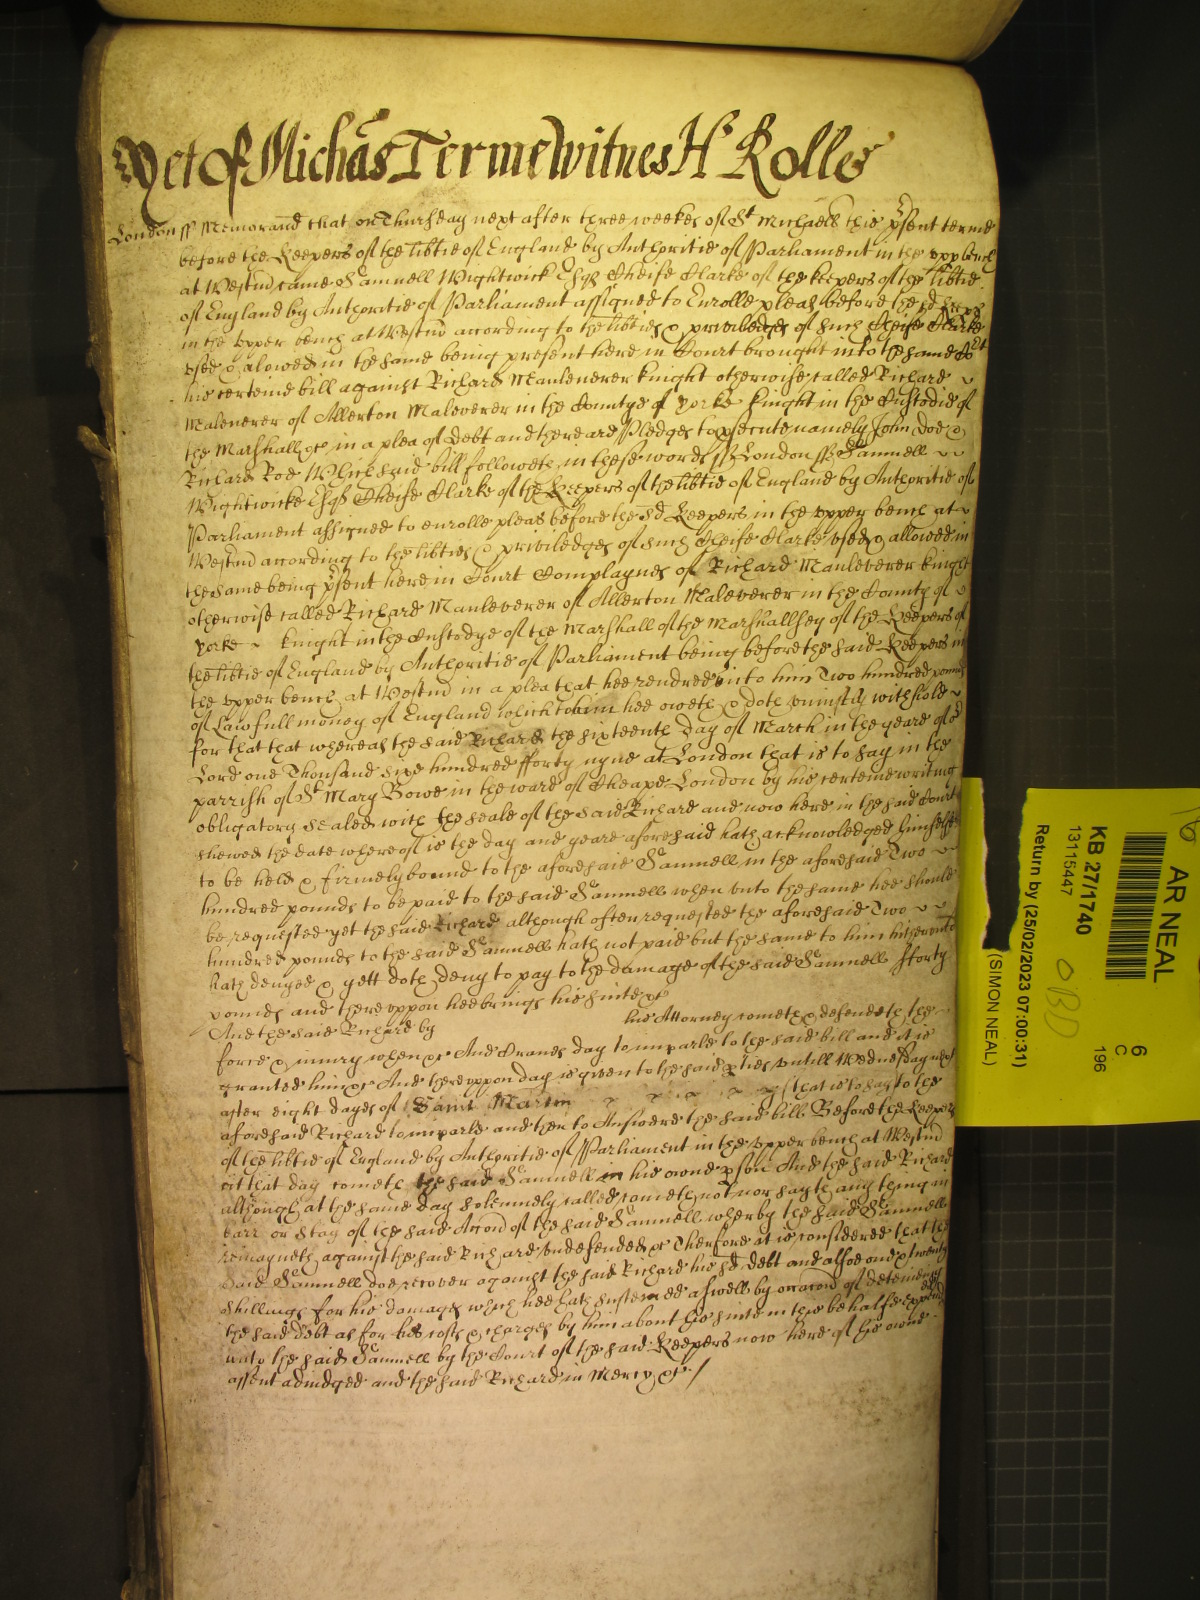 Yet of Michas Terme Witnes H Rolle
London ss Memorand that on Thursday next after three weekes of St Michaell this psent terme
before the Keepers of the libtie of England by Authoritie of Parliament in the vpp bench
at Westm came Samuell Wightwick Esqr Cheife Clarke of the keepers of the libtie
of England by Authoritie of Parliament assigned to Enrolle pleas before the sd keeps
in the vpper bench at Westm according to the libties & priviledges of such Cheife Clarke
vsed & alowed in the same being present here in Court brought into the same Co't
his certeine bill against Richard Mauleuerer knight otherwise called Richard
Maleuerer of Allerton Maleverer in the Countye of Yorke knight in the Custodie of
the Marshall &c in a plea of Debt and there are Pledges to psecute namely John Doe &
Richard Roe Which said bill followeth in these words ss London ss Samuell
Wightwicke Esqr Cheife Clarke of the Keepers of the libtie of England by Authoritie of
Parliament assigned to enrolle pleas before the sd Keepers in the vpper bench at
Westm according to the libties & priviledges of such Cheife Clarke vsed & allowed in
the same being psent here in Court Complaynes of Richard Mauleverer knight
otherwise called Richard Mauleverer of Allerton Maleverer in the County of
Yorke knight in the Custodye of the Marshall of the Marshallsey of the Keepers of
the libtie of England by Authoritie of Parliament being before the said Keepers in
the vpper bench at Westm in a plea that hee render vnto him Two hundred pounds
of Lawfull money of England which to him hee oweth & doth vniustly withhold
for that that whereas the said Richard the sixteenth day of March in the yeare of or
Lord one Thousand six hundred fforty nyne at London that is to say in the
parrish of St Mary Bowe in the ward of Cheape London by his certeine writing
obligatory sealed with the seale of the said Richard and now here in the said Court
shewed the date whereof is the day and yeare aforesaid hath acknowledged himselfe
to be held & firmely bound to the aforesaid Samuell in the aforesaid Two
hundred pounds to be paid to the said Samuell when vnto the same hee should
be requested yet the said Richard although often requested the aforesaid Two
hundred pounds to the said Samuell hath not paid but the same to him hitherunto
hath denyed & yett doth deny to pay to the damage of the said Samuell fforty
pounds and thereuppon hee brings his suite &c
And the said Richard by his Attorney cometh & defendeth the
force & iniury when &c And Craues day to imparle to the said bill and it is
granted him &c And thereuppon day is given to the said pties vntill Wednesday next
after eight dayes of Saint Martin that is to say to the
aforesaid Richard to imparle and then to Answere the said bill Before the Keepers
of the libtie of England by Authoritie of Parliament in the vpper bench at Westm
att that day cometh the said Samuell in his owne pson And the said Richard
although at the same day solemnely called cometh not nor sayth any thing in
barr or stay of the said Accon of the said Samuell wherby the said Samuell
remayneth against the said Richard vndefended &c Therfore it is considered that the
said Samuell doe recover against the said Richard his sd debt and alsoe one & twenty
shillings for his damages which hee hath susteined aswell by occacon of deteineing
the said debt as for his costs & charges by him about his suite in this behalfe expended
vnto the said Samuell by the Court of the said Keepers now here of his owne
assent adiudged and the said Richard in Mercy &c
AR NEAL
KB 27/1740
13115447
Return by (25/02/2023 07:00:31)
(SIMON NEAL)
6
C
196
OBD